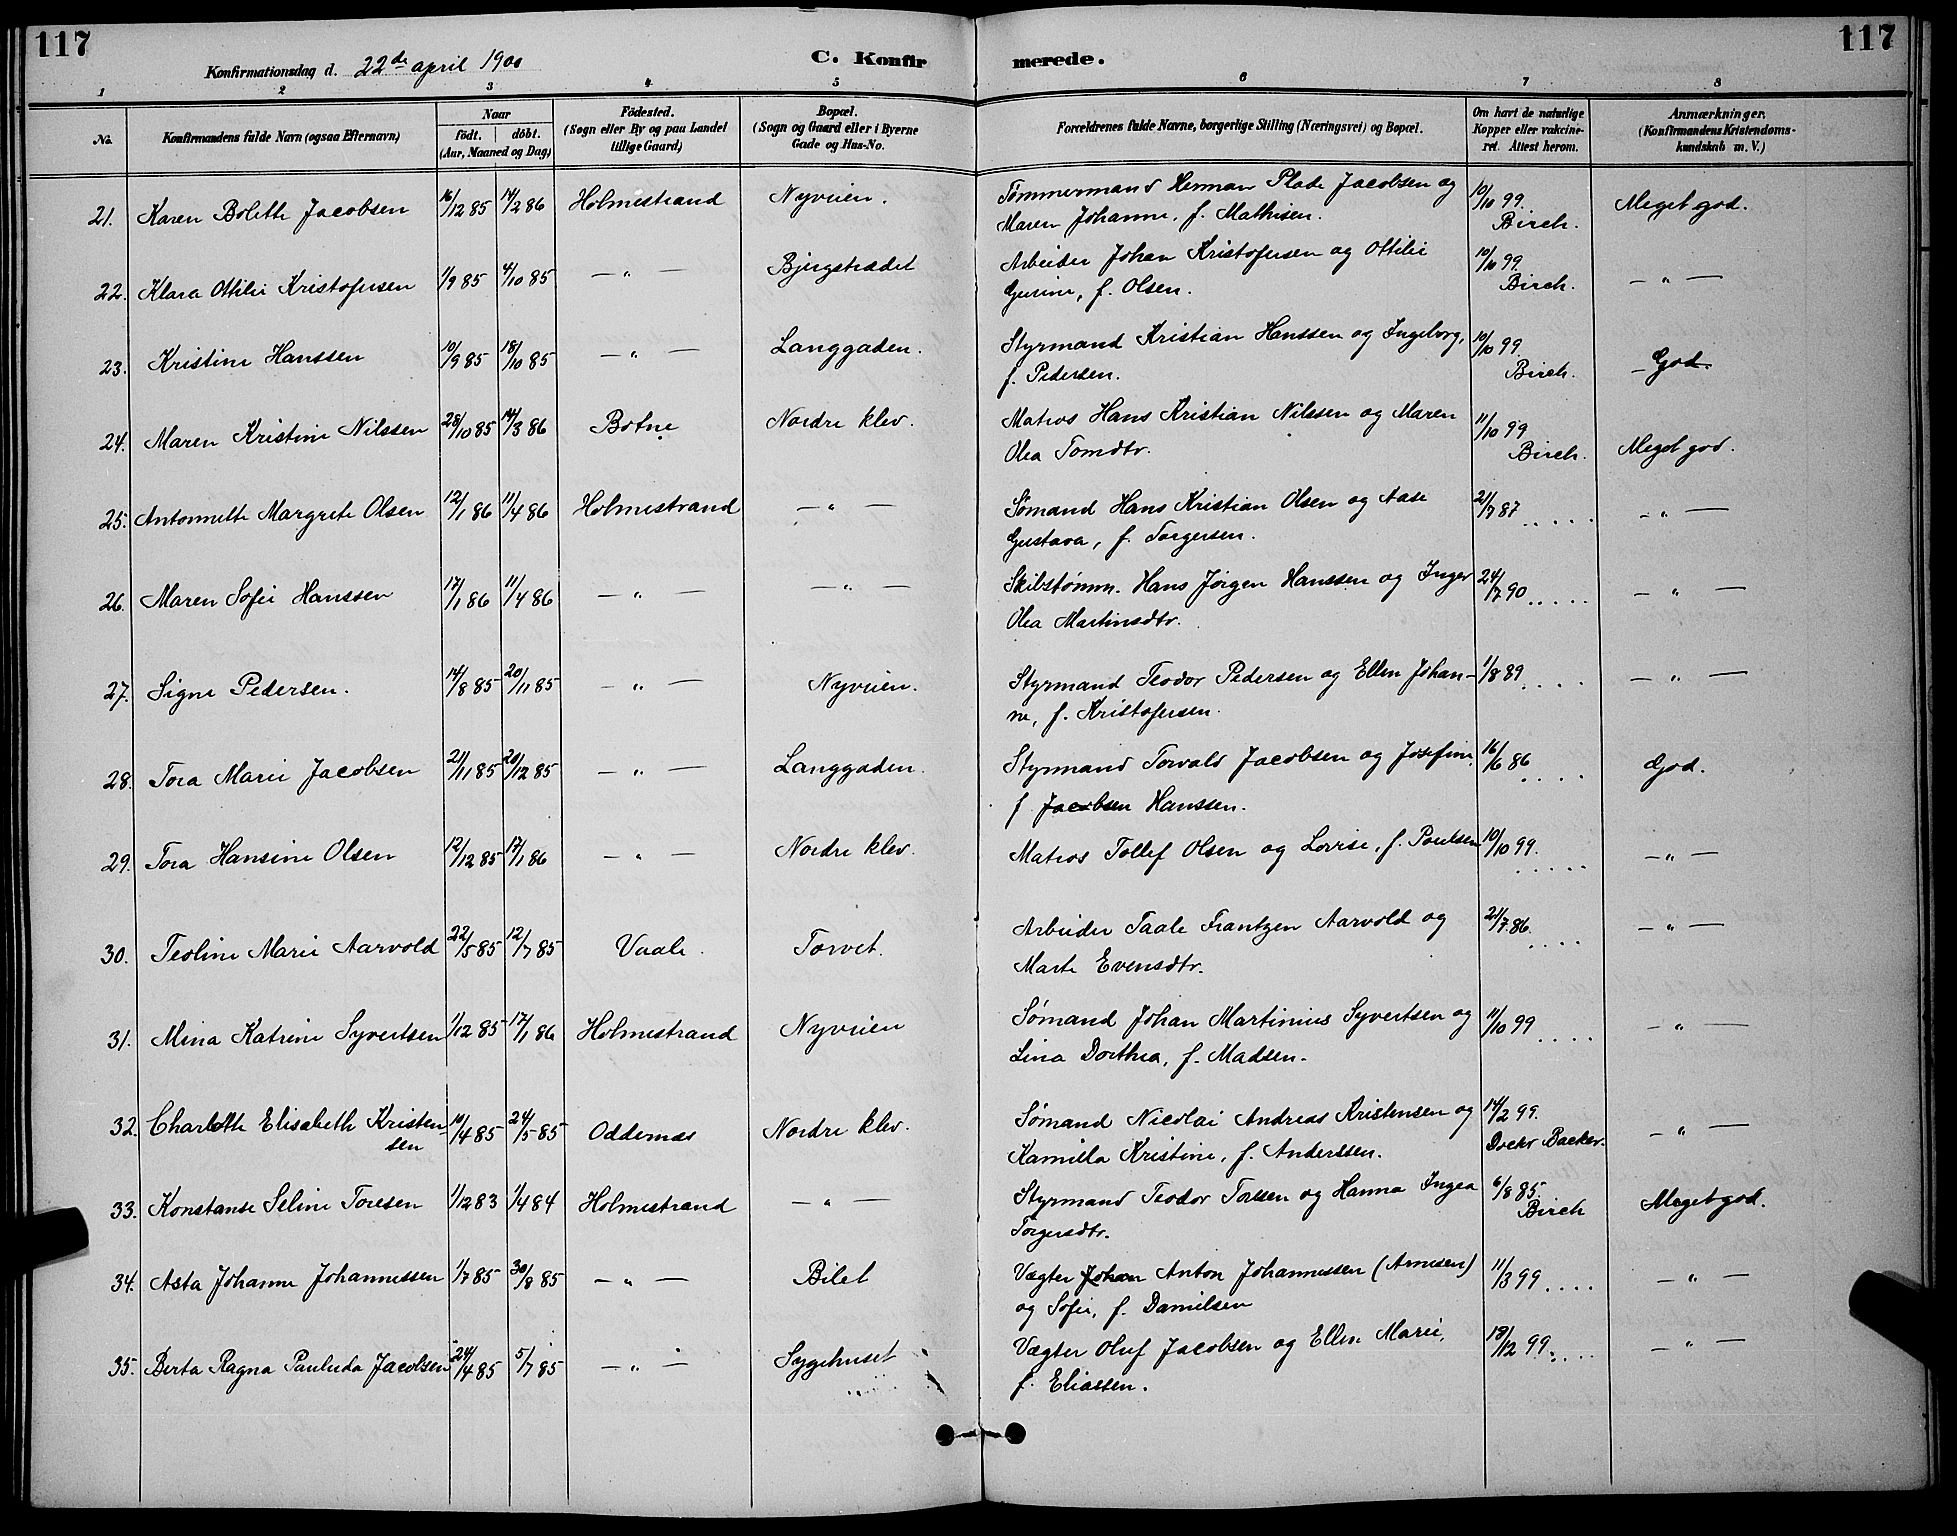 117
Konfirmationsdag d. 22de april 1900
C. Konfirmerede.
117
1 2 3 4 5 6 7 8
No.
Konfirmandens fulde Navn (ogsaa Efternavn)
Naar
födt. döbt.
(Aar, Maaned og Dag)
Födested.
(Sogn eller By og paa Landet
tillige Gaard)
Bopæl.
(Sogn og Gaard eller i Byerne
Gade og Hus-No.
Forældrenes fulde Navne, borgerlige Stilling (Næringsvei) og Bopæl.
Om havt de naturlige
Kopper eller vakcine-
ret. Attest herom.
Anmærkninger.
(Konfirmandens Kristendoms-
kundskab m. V.)
21. Karen Bolette Jacobsen 16/12 85 14/2 86 Holmestrand Nyveien. Tømmermand Herman Plade Jacobsen og 10/10 99. Meget god.
Maren Johanne, f. Mathisen. Birch.
22. Klara Ottilie Kristofersen 1/9 85 4/10 85 — " — Bjergstrædet Arbeider Johan Kristofersen og Ottilie 10/10 99. — " —
Gurine, f. Olsen. Birch.
23. Kristine Hanssen 10/9 85 18/10 85 — " — Langgaden. Styrmand Kristian Hanssen og Ingeborg, 10/10 99. God.
f. Pedersen. Birch.
24. Maren Kristine Nilssen 28/10 85 14/3 86 Botne Nordre klev. Matros Hans Kristian Nilssen og Maren 11/10 99 Meget god.
Olea Tomdtr. Birch.
25. Antonnette Margrete Olsen 12/1 86 11/4 86 Holmestrand — " — Sømand Hans Kristian Olsen og Aase 21/7 87 ..... — " —
Gustava, f. Torgersen.
26. Maren Sofie Hanssen 17/1 86 11/4 86 — " — — " — Skibstømm. Hans Jørgen Hanssen og Inger 24/7 90 ..... — " —
Olea Martinsdtr.
27. Signe Pedersen. 14/8 85 20/11 85 — " — Nyveien. Styrmand Teodor Pedersen og Ellen Johan- 1/8 89 .... — " —
ne, f. Kristofersen.
28. Tora Marie Jacobsen 21/11 85 20/12 85 — " — Langgaden. Styrmand Torvald Jacobsen og Josefine, 16/6 86 .... God.
f Jacobsen Hanssen.
29. Tora Hansine Olsen 12/12 85 17/1 86 — " — Nordre klev. Matros Tollef Olsen og Lovise, f. Poulsen 10/10 99. ..... — " —
30. Teoline Marie Aarvold 22/5 85 12/7 85 Vaale. Torvet. Arbeider Taale Frantzen Aarvold og 21/7 86. .... — " —
Marte Evensdtr.
31. Mina Katrine Syvertsen 1/12 85 17/1 86 Holmestrand Nyveien Sømand Johan Martinius Syvertsen og 11/10 99 .... — " —
Lina Dorthea, f. Madsen.
32. Charlotte Elisabeth Kristen- 10/4 85 24/5 85 Oddernes Nordre klev. Sømand Nicolai Andreas Kristensen og 14/2 99. — " —
sen Kamilla Kristine, f. Anderssen. Doctr Backer.
33. Konstanse Seline Toresen 1/12 83 1/4 84 Holmestrand — " — Styrmand Teodor Toresen og Hanna Ingea 6/8 85. Meget god.
Torgersdtr. Birch
34. Asta Johanne Johannessen 1/7 85 30/8 85 — " — Bilet Vægter Johan Anton Johannessen (Arnesen) 11/3 99 .... — " —
og Sofie, f. Danielsen
35. Berta Ragna Pauluda Jacobsen 24/4 85 5/7 85 — " — Sygehuset Vægter Oluf Jacobsen og Ellen Marie, 13/12 99. .... — " —
f. Eliassen.